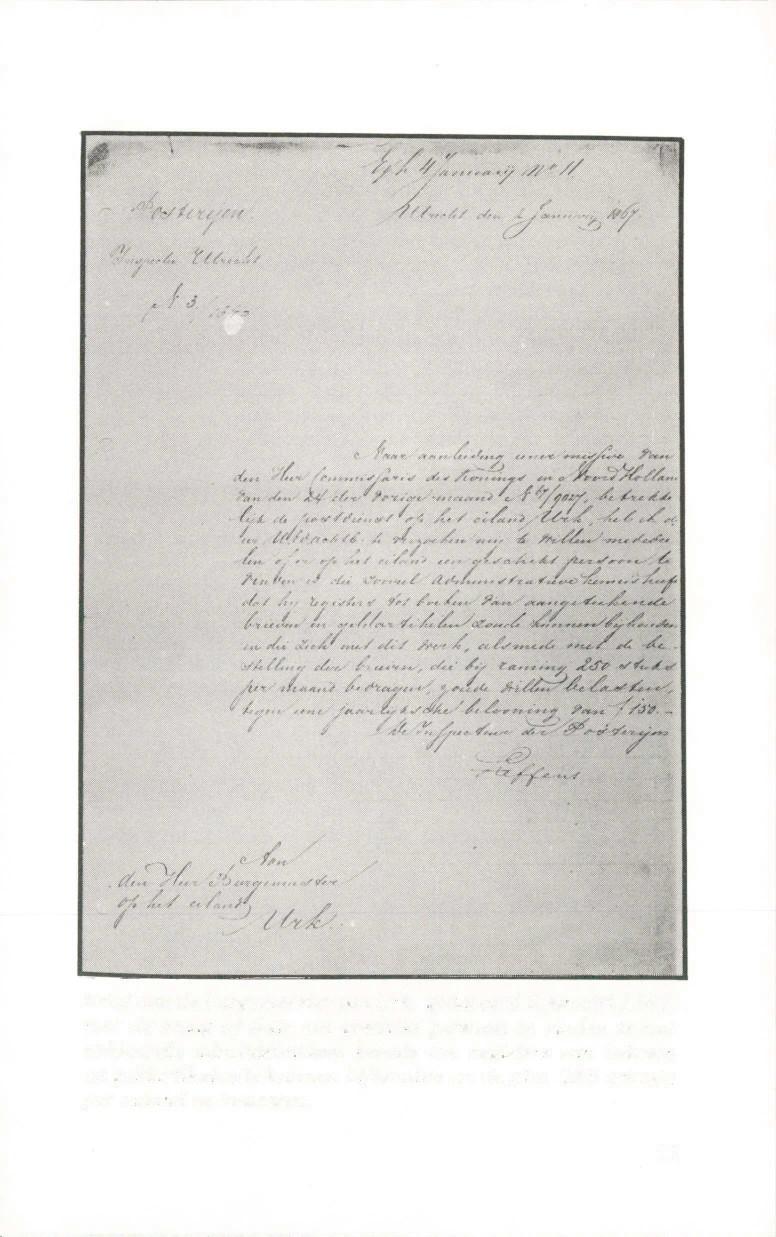 Exh 4 January No 11
Posteryen.
Utrecht den 2 January 1867.
Inspectie Utrecht
N 3/
Naar aanleiding eener missive van
den Heer Commissaris des Konings in Noord Holland
van den 24 der vorige maand N 67/9027, betrekke
lyk de postdienst op het eiland Urk, heb ik d
eer UEdAchtb te verzoeken my te willen mededee
len of er op het eiland een geschikt persoon te
vinden is die zooveel administratieve kennis heeft
dat hy registers tot boeken van aangeteekende
brieven en geldartikelen zoude kunnen byhouden
en die zich met dit werk, alsmede met de be-
stelling der brieven, die bij raming 250 stuks
per maand bedragen, zoude willen belasten,
tegen eene jaarlyksche belooning van f 150.-
De Inspecteur der Posteryen
Steffens
Aan
den Heer Burgemeester
op het eiland
Urk.